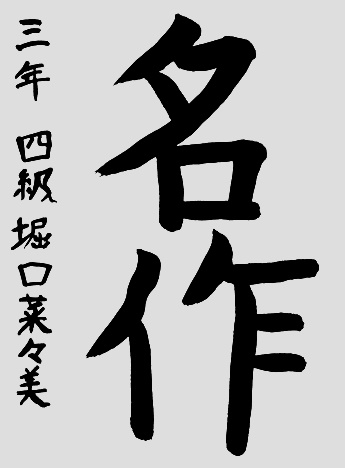 名作
三年 四級 堀口菜々美